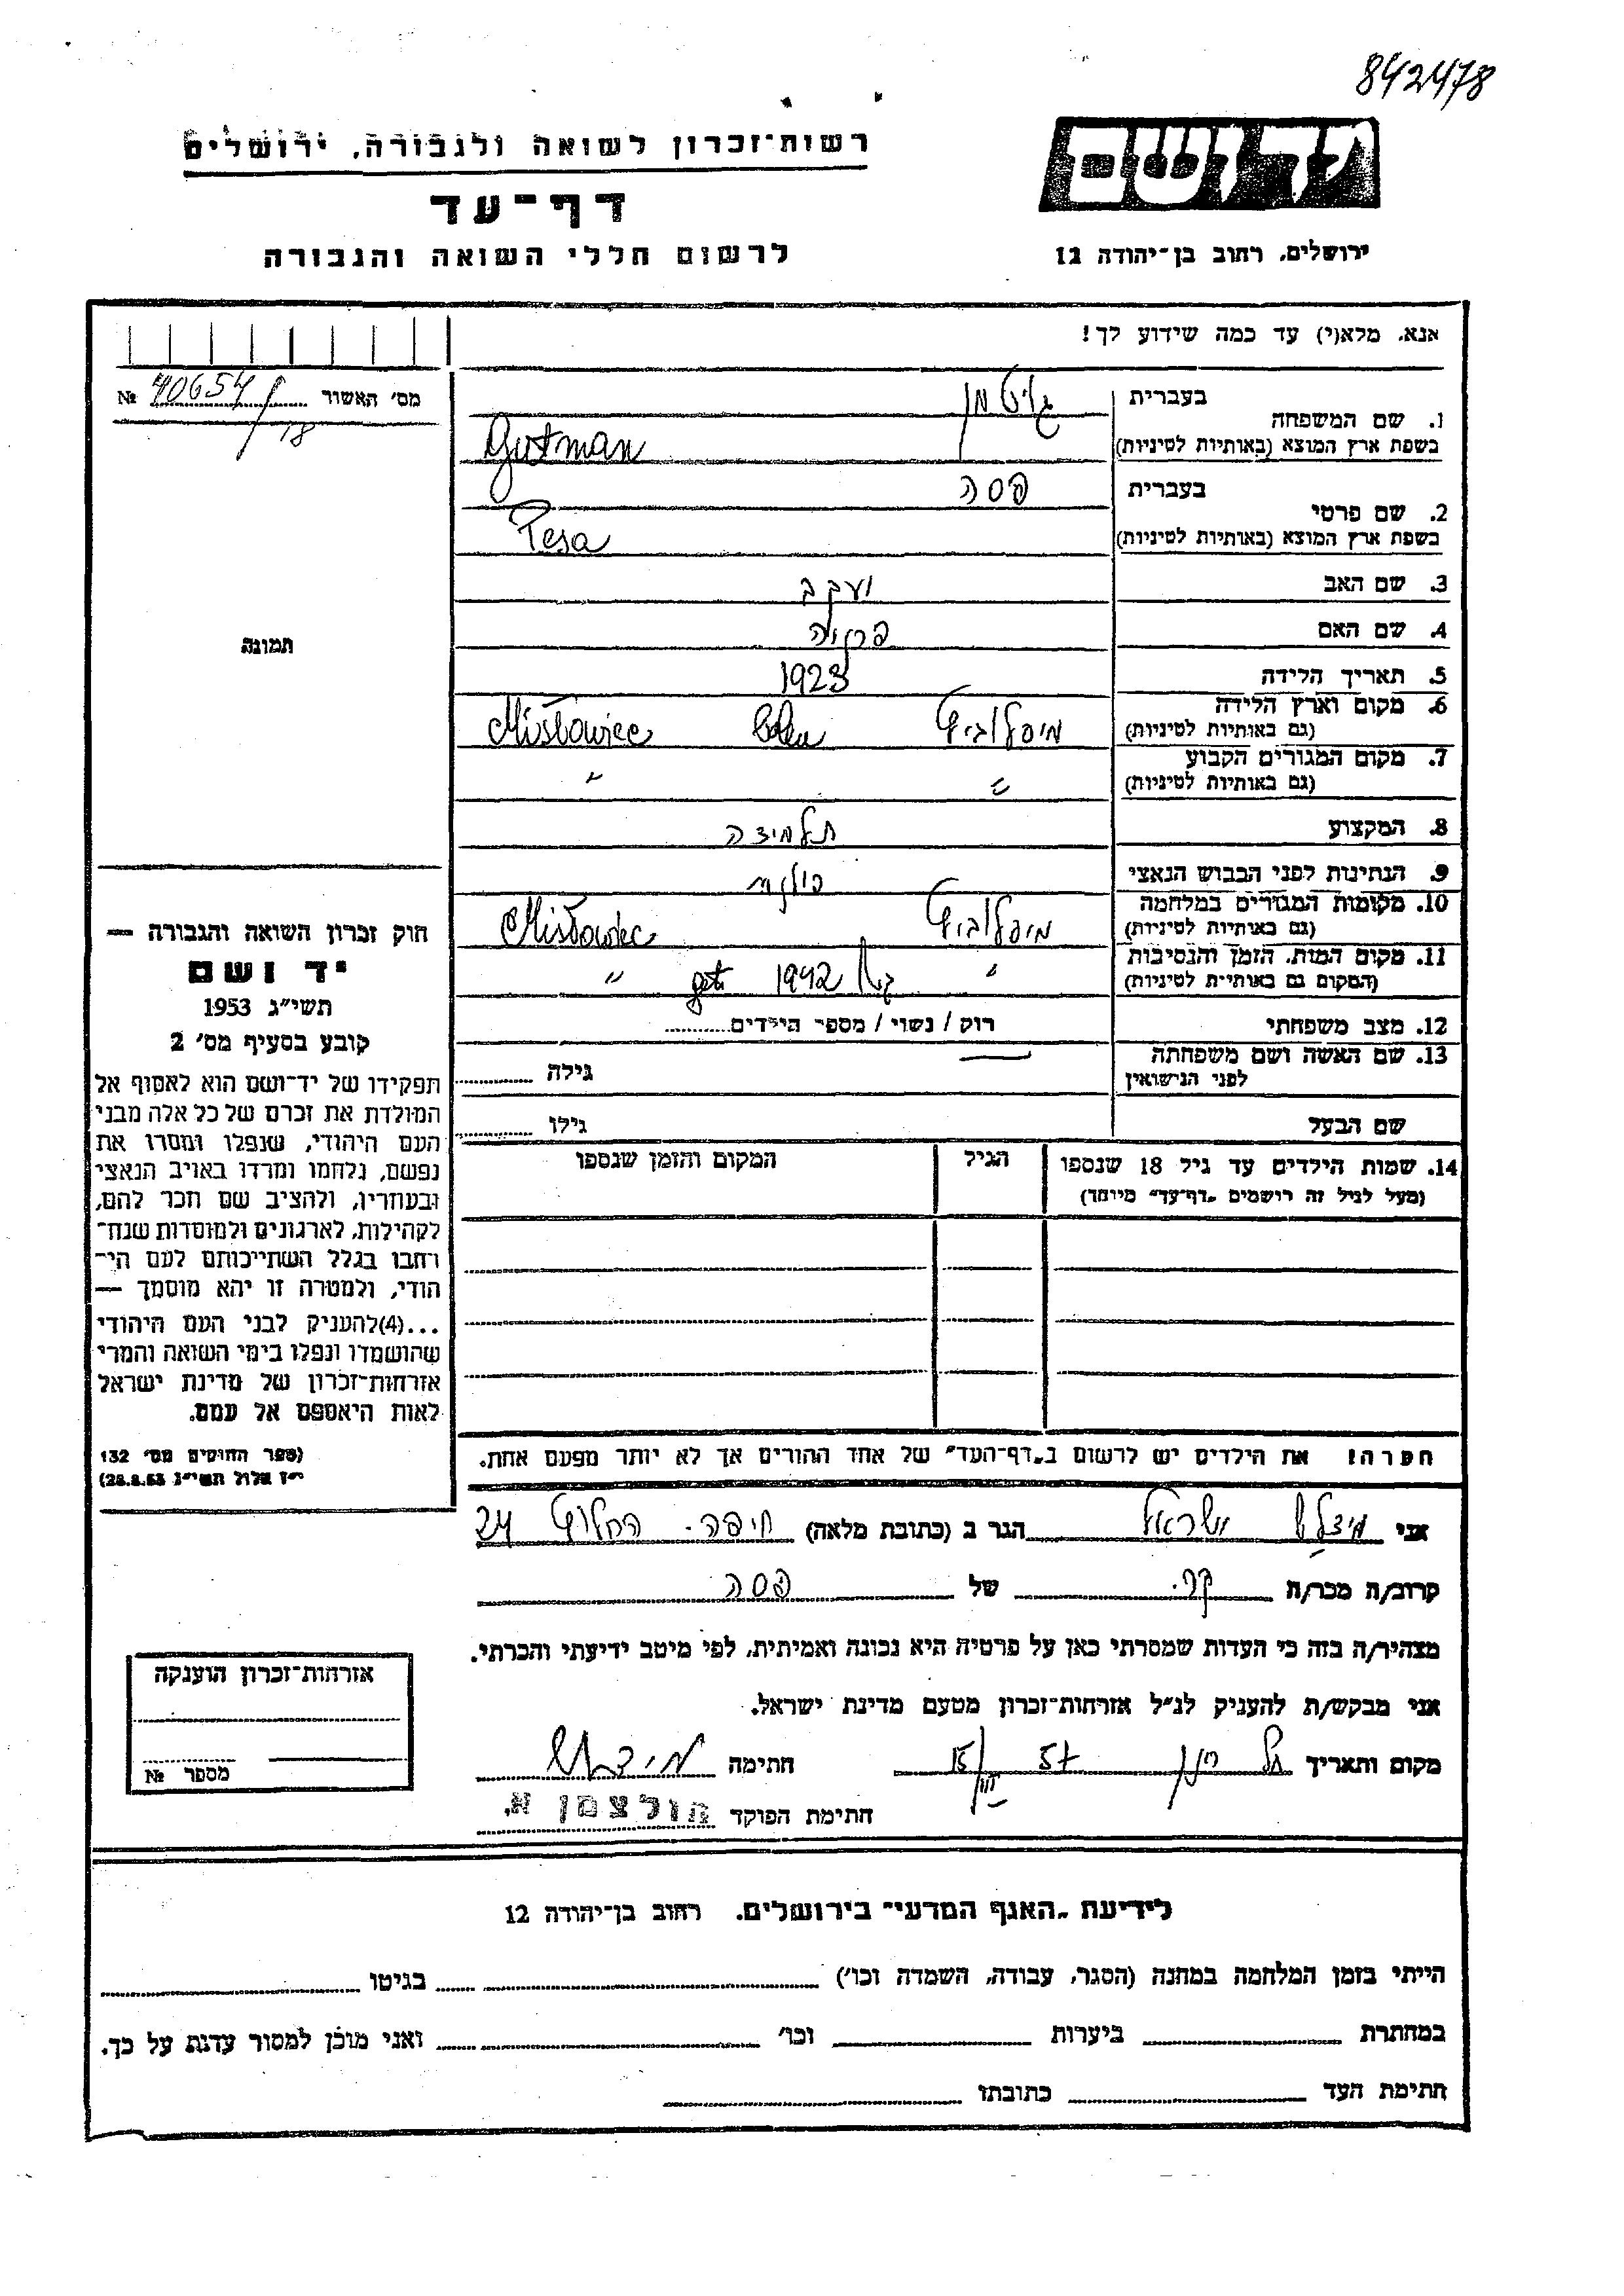 842478
רשות־זכרון לשואה ולגבורה, ירושלים
יד ושם
דף־עד
לרשום חללי השואה והגבורה
ירושלים, רחוב בן־יהודה 12
אנא, מלא(י) עד כמה שידוע לך!
מס׳ האשור № 40654/18
1. שם המשפחה
בעברית גוטמן
בשפת ארץ המוצא (באותיות לטיניות) Gutman
2. שם פרטי
בעברית פסה
בשפת ארץ המוצא (באותיות לטיניות) Pesa
3. שם האב יעקב
4. שם האם
5. תאריך הלידה 1923
6. מקום וארץ הלידה
(גם באותיות לטיניות) Mislowiec
7. מקום המגורים הקבוע
(גם באותיות לטיניות) " "
8. המקצוע תלמידה
9. הנתינות לפני הכבוש הנאצי פולנית
10. מקומות המגורים במלחמה
(גם באותיות לטיניות) Mislowiec
11. מקום המות, הזמן והנסיבות
(המקום גם באותיות לטיניות) " 1942 "
12. מצב משפחתי רוק / נשוי / מספר הילדים
13. שם האשה ושם משפחתה
לפני הנישואין — גילה
שם הבעל גילו
14. שמות הילדים עד גיל 18 שנספו הגיל המקום והזמן שנספו
(מעל לגיל זה רושמים „דף־עד” מיוחד)
הערה! את הילדים יש לרשום ב„דף־העד” של אחד ההורים אך לא יותר מפעם אחת.
תמונה
חוק זכרון השואה והגבורה —
יד ושם
תשי״ג 1953
קובע בסעיף מס׳ 2
תפקידו של יד־ושם הוא לאסוף אל
המולדת את זכרם של כל אלה מבני
העם היהודי, שנפלו ומסרו את
נפשם, נלחמו ומרדו באויב הנאצי
ובעוזריו, ולהציב שם וזכר להם,
לקהילות, לארגונים ולמוסדות שנח־
רבו בגלל השתייכותם לעם הי־
הודי, ולמטרה זו יהא מוסמך —
...(4)להעניק לבני העם היהודי
שהושמדו ונפלו בימי השואה והמרי
אזרחות־זכרון של מדינת ישראל
לאות היאספם אל עמם.
(ספר החוקים מס׳ 132
י״ז אלול תשי״ג 28.8.53)
אני ישראל הגר ב (כתובת מלאה) חיפה. החלוץ 24
קרוב/ה מכר/ה קר. של פסה
מצהיר/ה בזה כי העדות שמסרתי כאן על פרטיה היא נכונה ואמיתית, לפי מיטב ידיעתי והכרתי.
אני מבקש/ת להעניק לנ״ל אזרחות־זכרון מטעם מדינת ישראל.
מקום ותאריך 57 15 חתימה
חתימת הפוקד הולצמן א.
אזרחות־זכרון הוענקה
מספר №
לידיעת „האגף המדעי” בירושלים. רחוב בן־יהודה 12
הייתי בזמן המלחמה במחנה (הסגר, עבודה, השמדה וכו׳) בגיטו
במחתרת ביערות וכו׳ ואני מוכן למסור עדות על כך.
חתימת העד כתובתו